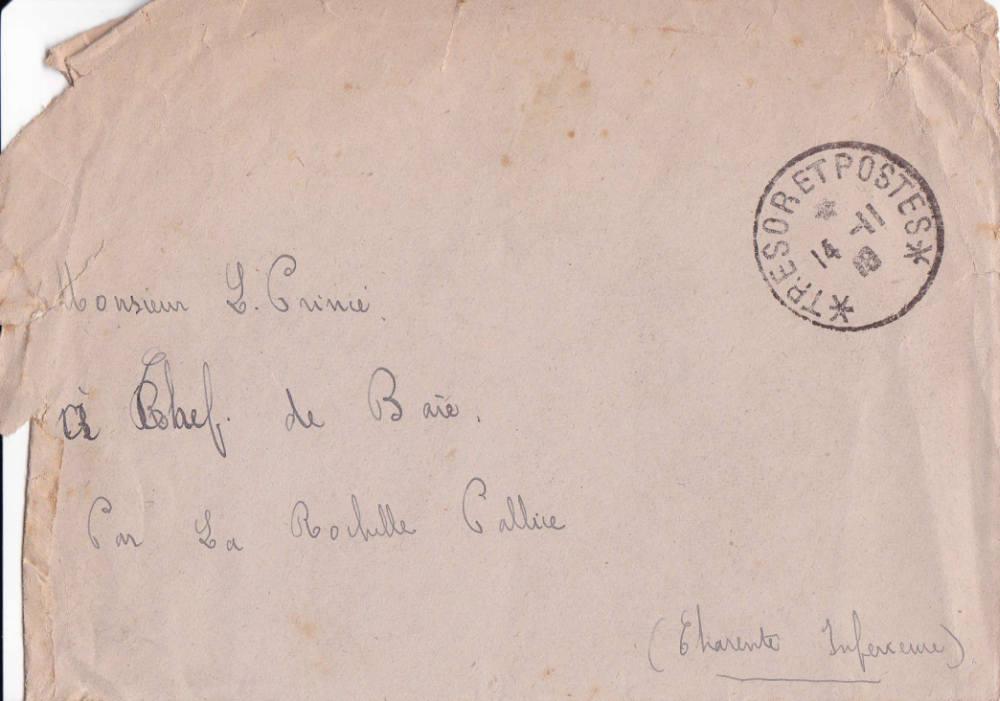 * TRESOR ET POSTES *
* 14 -11
Monsieur L. Princé.
à Chef. de Baie.
Par La Rochelle Pallice
(Charente Inferieure)